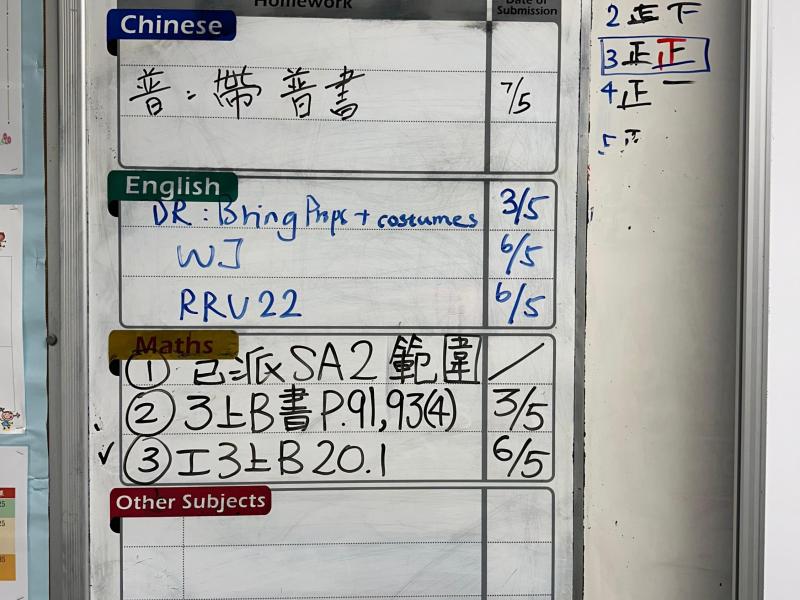 Homework
Date of
Submission
Chinese
普：帶 普書 7/5
English
DR : Bring Props + costumes 3/5
WJ 6/5
RRV 22 6/5
Maths
① 已派 SA2 範圍 /
② 3上B書 P.91,93(4) 3/5
✓ ③ 工3上B 20.1 6/5
Other Subjects
2 正下
3 正正
4 正一
5